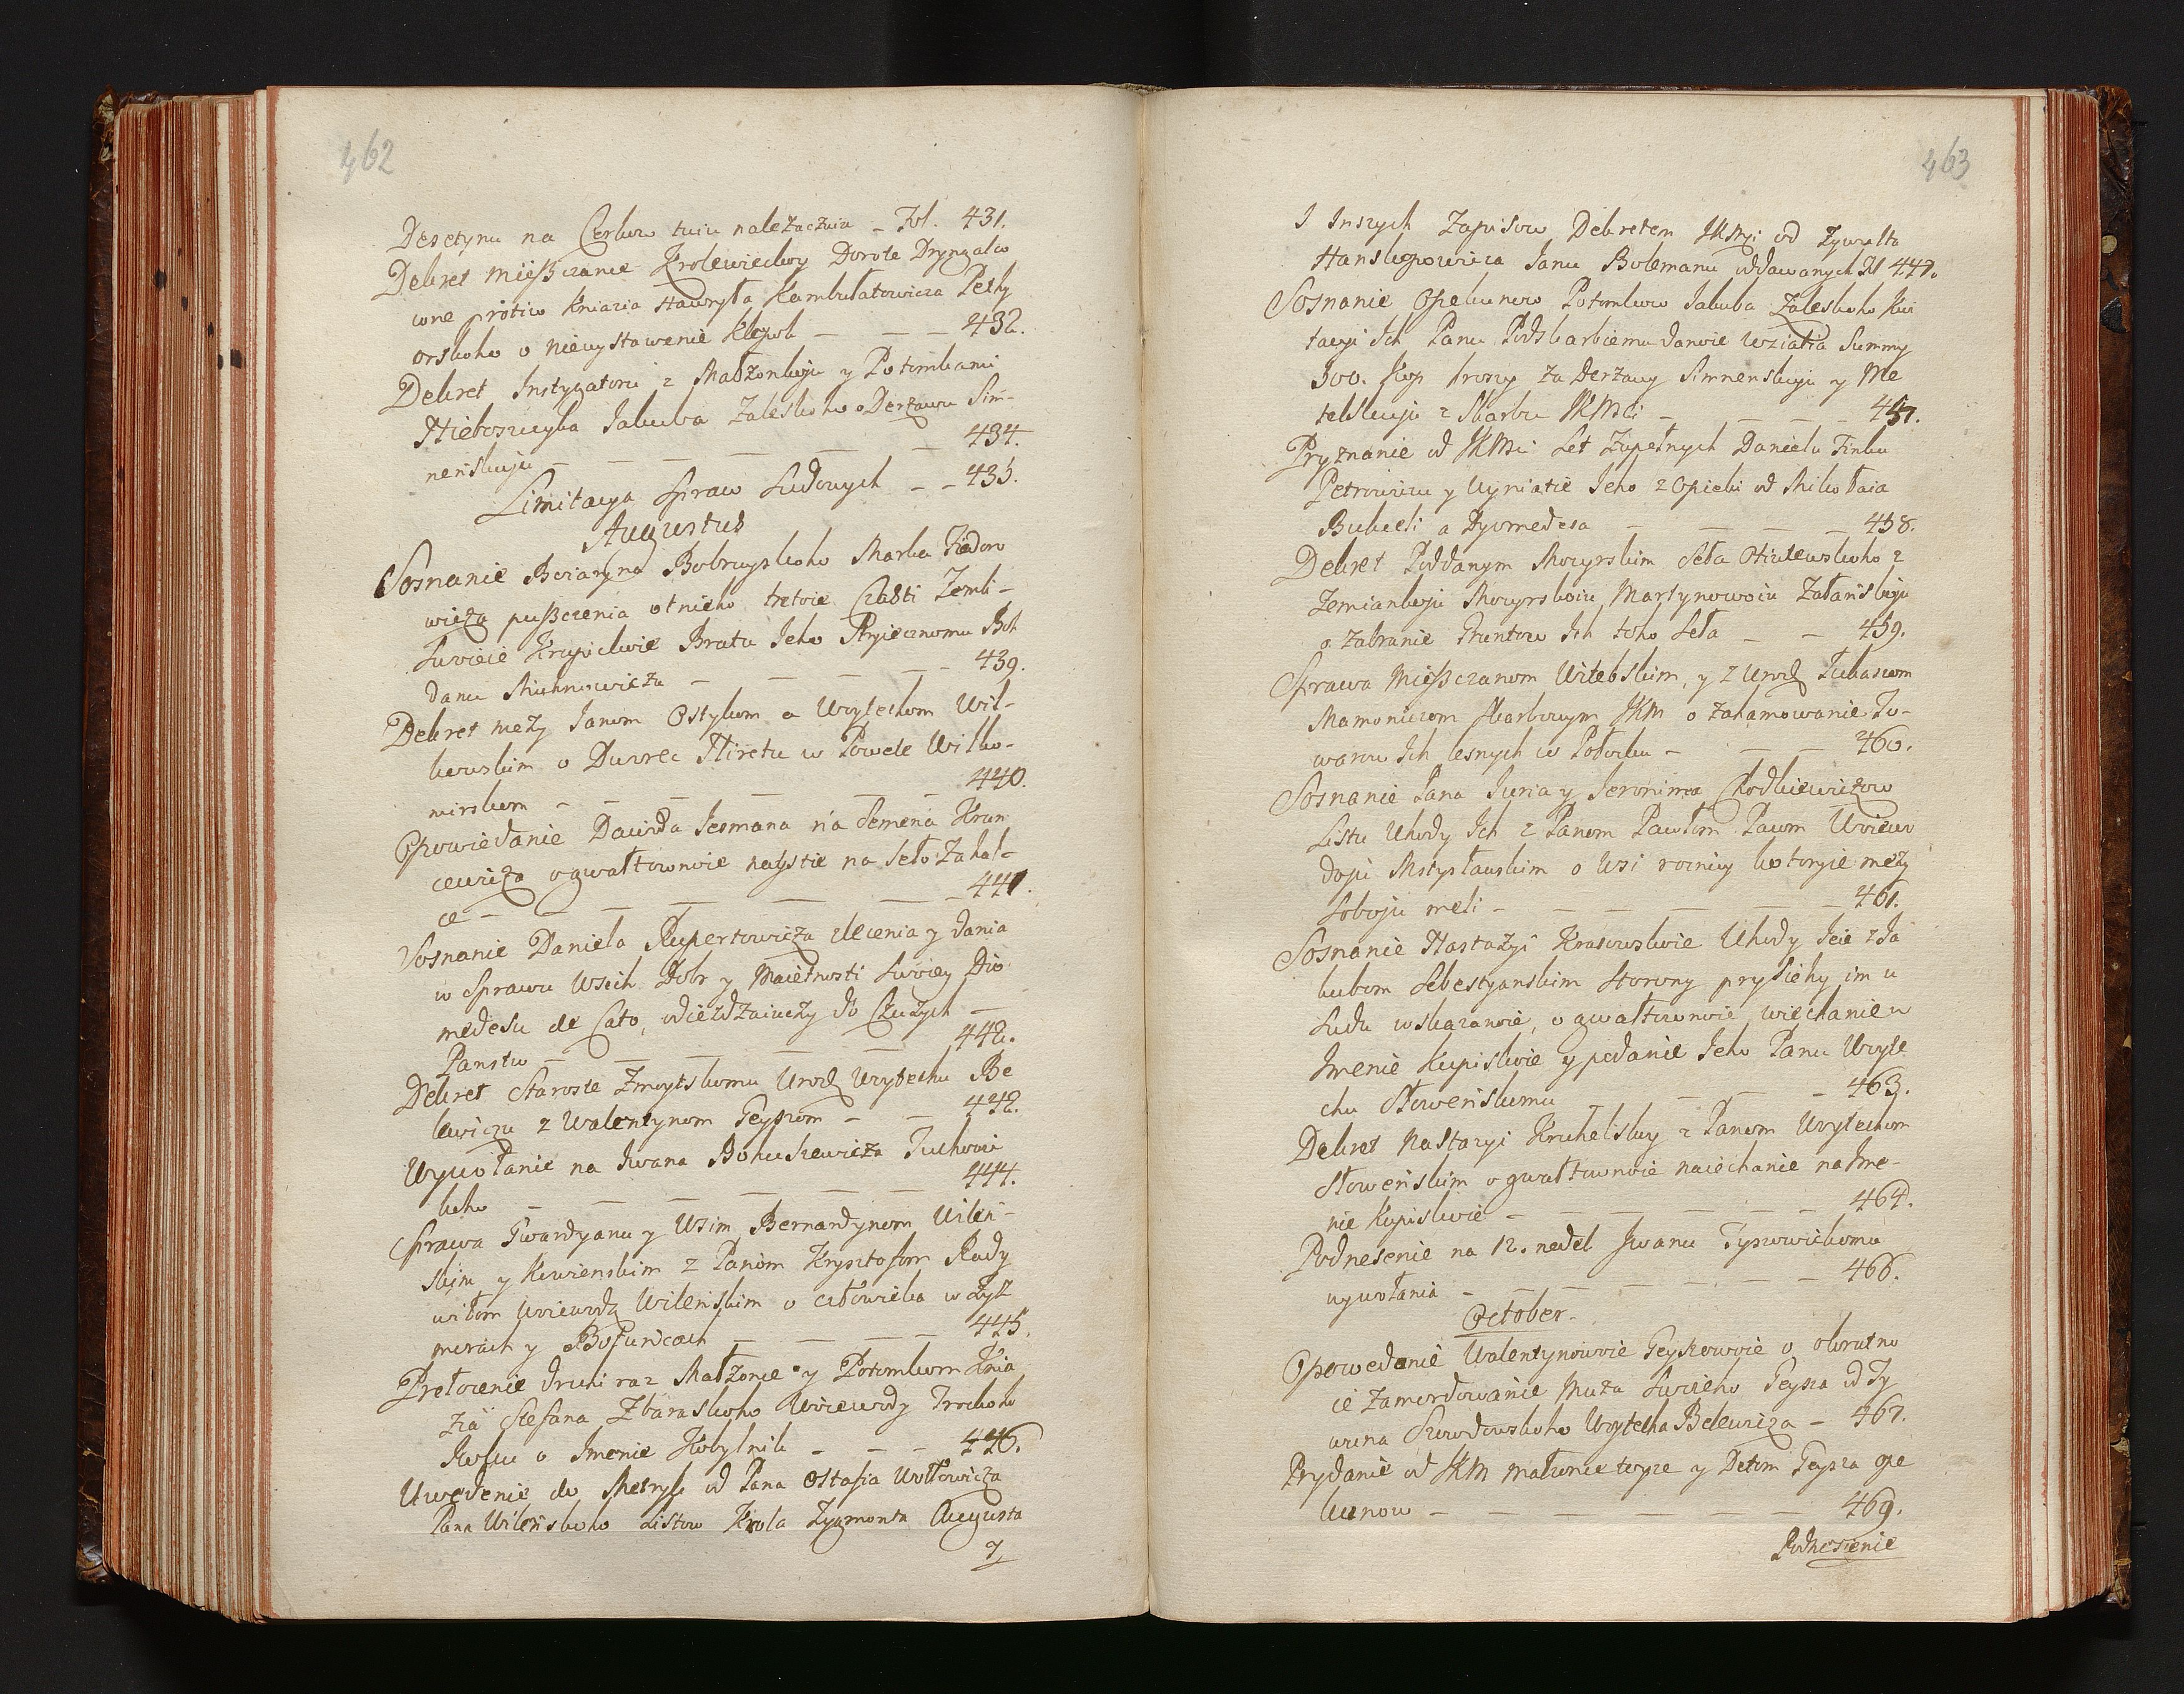 462
Desetynu na Cerkow tuiu nalezaczuiu _ Fol. 431.
Dekret Mießczance Krolewieckoy Dorote Dryngalco
wne protiw Kniazia Hawryła Kambułatowicza Pethy
orskoho o niewystawenie Klepok _ _ _ 432.
Dekret Instygatoru z Małżonkoju y Potomkami
Nieboszczyka Jakuba Zaleskoho o Derzawu Sim-
nenskuju _ _ _ _ _ _ 434.
Limitacya Spraw Sudowych _ _ 435.
Augustus
Sosnanie Boiaryna Bobruyskoho Marka Fiedoro
wicza pußczenia otnieho tretoie Czasti Zemli-
Swoieie Krupickoie Bratu Jeho Pryiecznomu Boh
danu Michnowiczu _ _ _ _ _ 439.
Dekret mezy Janom Ostykom a Woytechom Wil-
kowskim o Dworec Hiretu w Powete Wilko-
mirskom _ _ _ _ _ _ 440.
Opowiedanie Dawida Jesmana na Semena Krun
cewicza o gwałtownoie nastie na Seło Zahal-
ce _ _ _ _ _ _ 441.
Sosnanie Daniela Rupertowicza zlecenia y dania
w Sprawu Wsich Dobr y Maietnosti Swoiey Dio
medesu de Cato, odiezdzaiuczy do Czużych _
Panstw _ _ _ _ _ 442.
Dekret Staroste Zmoytskomu Urod Woytechu Be
lewiczu z Walentynom Geyszom _ _ 442.
Wywołanie na Iwana Bohuszewicza Tuchowi
koho _ _ _ _ _ 444.
Sprawa Gwardyanu y Wsim Bernardynom Wilen-
skim y Kowienskim z Panom Krysztofom Rady
wiłom Woiewodą Wilenskim o człowieka w Żyż
morach y Bosunicach _ _ _ _ 445.
Prełozenie druhi raz Małżonce y Potomkom Knia
zia Stefana Zbaraskoho Woiewody Trockoho
Roku o Imenie Kobylnik _ _ _ 446.
Uwedenie do Metryk od Pana Ostafia Wołłowicza
Pana Wilenskoho Listow Krola Zygmonta Augusta
y
463
I Inszych Zapisow Dekretem JKMsci od Zywulta
Hanslepowicza Janu Bolemanu oddawanych Fol 447.
Sosnanie Opekunow Potomkow Jakuba Zaleskoho kwi
tacyi Ich Panu Podskarbiemu danoie wziatia Summy
300. Kop hroszy za Derzawy Simnenskuju y Me
telskuju z Skarbu JKMci _ _ _ _ 457.
Pryznanie od JKMci Let Zupełnych Danielu Finku
Petrowiczu y Wyniatie Jeho z Opieki od Mikołaia
Bukieli a Dyomedesa _ _ _ _ 458.
Dekret Poddanym Mozyrskim Seła Otirzewskoho z
Zemiankoju Mozyrskoiu Martynowoiu Załanskoju
o Zabranie Gruntow Ich toho Seła _ _ 459.
Sprawa Mießczanom Witebskim, y z Urod Łukaszom
Mamoniczom Skarbnym JKM o Zahamowanie To-
warow Ich lesnych w Połocku _ _ _ 460.
Sosnanie Pana Juria y Jeronima Chodkiewiczow
Listu Uhody Ich z Panom Pawłom Pacom Woiewo
doju Mstysławskim o Wsi roznicy kotoryie mezy
Soboju meli _ _ _ _ _ _ 461.
Sosnanie Nastazyi Krasowskoie Uhody Jeie z Ja
kubom Sebestyanskim Storony prysiehy im u
Sudu wskazanoie, o gwałtownoie wiechanie w
Imenie Kupiskoie y podanie Jeho Panu Woyte
chu Słowenskomu _ _ _ _ 463.
Dekret Nastazyi Kruhelskoy z Panem Woytechom
Słowenskim o gwałtownoie naiechanie na Ime-
nie Kupiskoie _ _ _ _ _ _ 464.
Podnesenie na 12. nedel Iwanu Tyszowickomu
wywołania _ _ _ _ _ _ 466.
October.
Opowedanie Walentynowoie Geyszowoie o okrutno
ie Zamordowanie Muża Swoieho Geysza od Ty
wuna Szowdowskoho Woytecha Belewicza _ 467.
Prydanie od JKM małzonce teyze y Detem Geysza ope
kunow _ _ _ _ _ _ 469.
Podneszenie